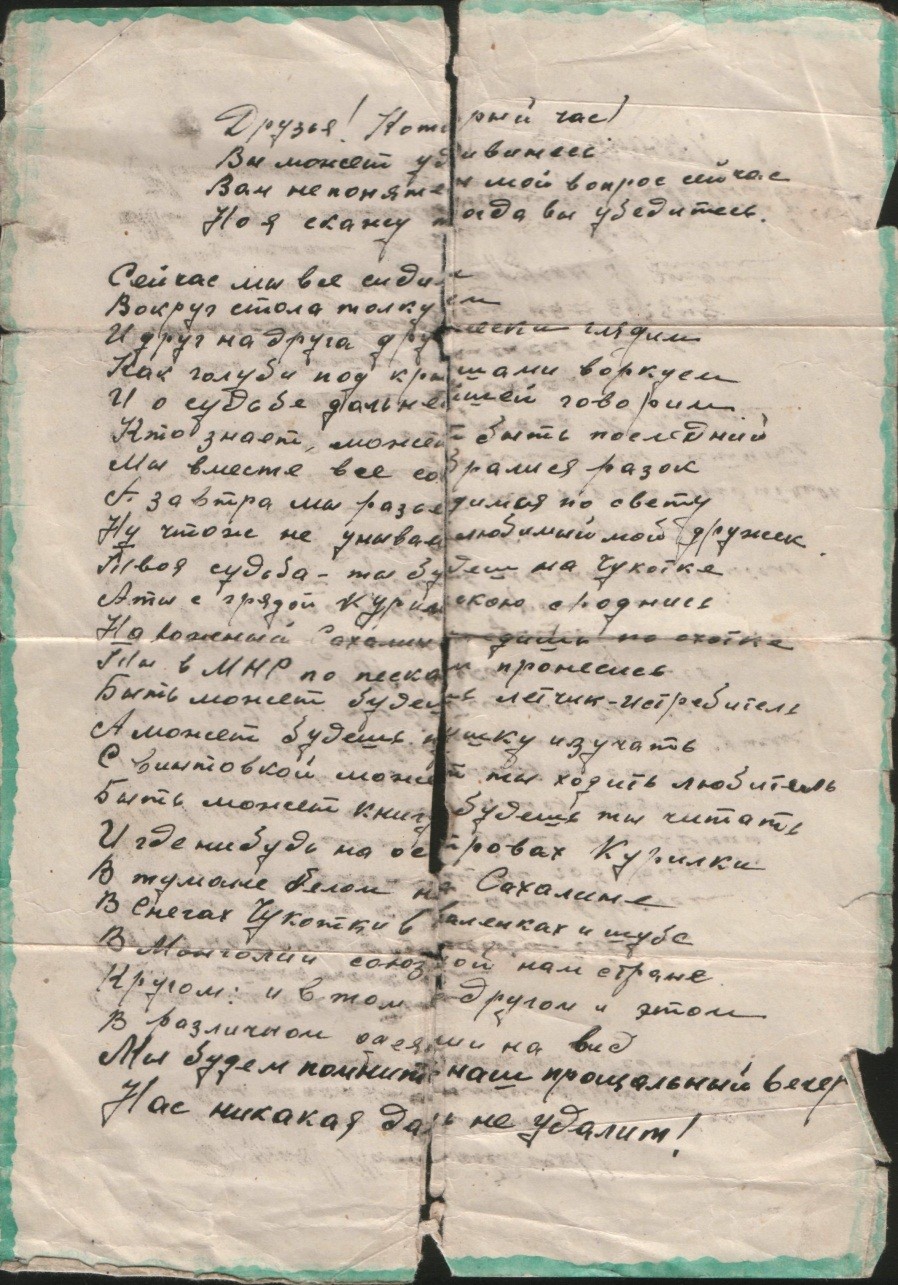 Друзья! Который час!
Вы может удивитесь
Вам непонятен мой вопрос сейчас
Но я скажу тогда вы убедитесь.
Сейчас мы все сидим
Вокруг стола толкуем
И друг на друга дружески глядим
Как голуби под крышами воркуем
И о судьбе дальнейшей говорим
Кто знает, может быть последний
Мы вместе все собралися разок
А завтра мы разъедимся по свету
Ну чтож не унывай любимый мой дружек.
Твоя судьба – ты будеш на Чукотке
А ты с грядой Курильскою сроднись
На южный Сахалин по охотке
Ты в МНР по пескам пронесись
Быть может будешь летчик-истребитель
А может будешь пушку изучать
С винтовкой может ты ходить любитель
Быть может книгу будешь ты читать
И где нибудь на островах Курилки
В тумане белом на Сахалине
В снегах Чукотки в валенках и шубе
В Монголии союзной нам стране
Кругом: и в том и другом и этом
В различном одеяньи на вид
Мы будем помнить наш прощальный вечер
Нас никакая даль не удалит!